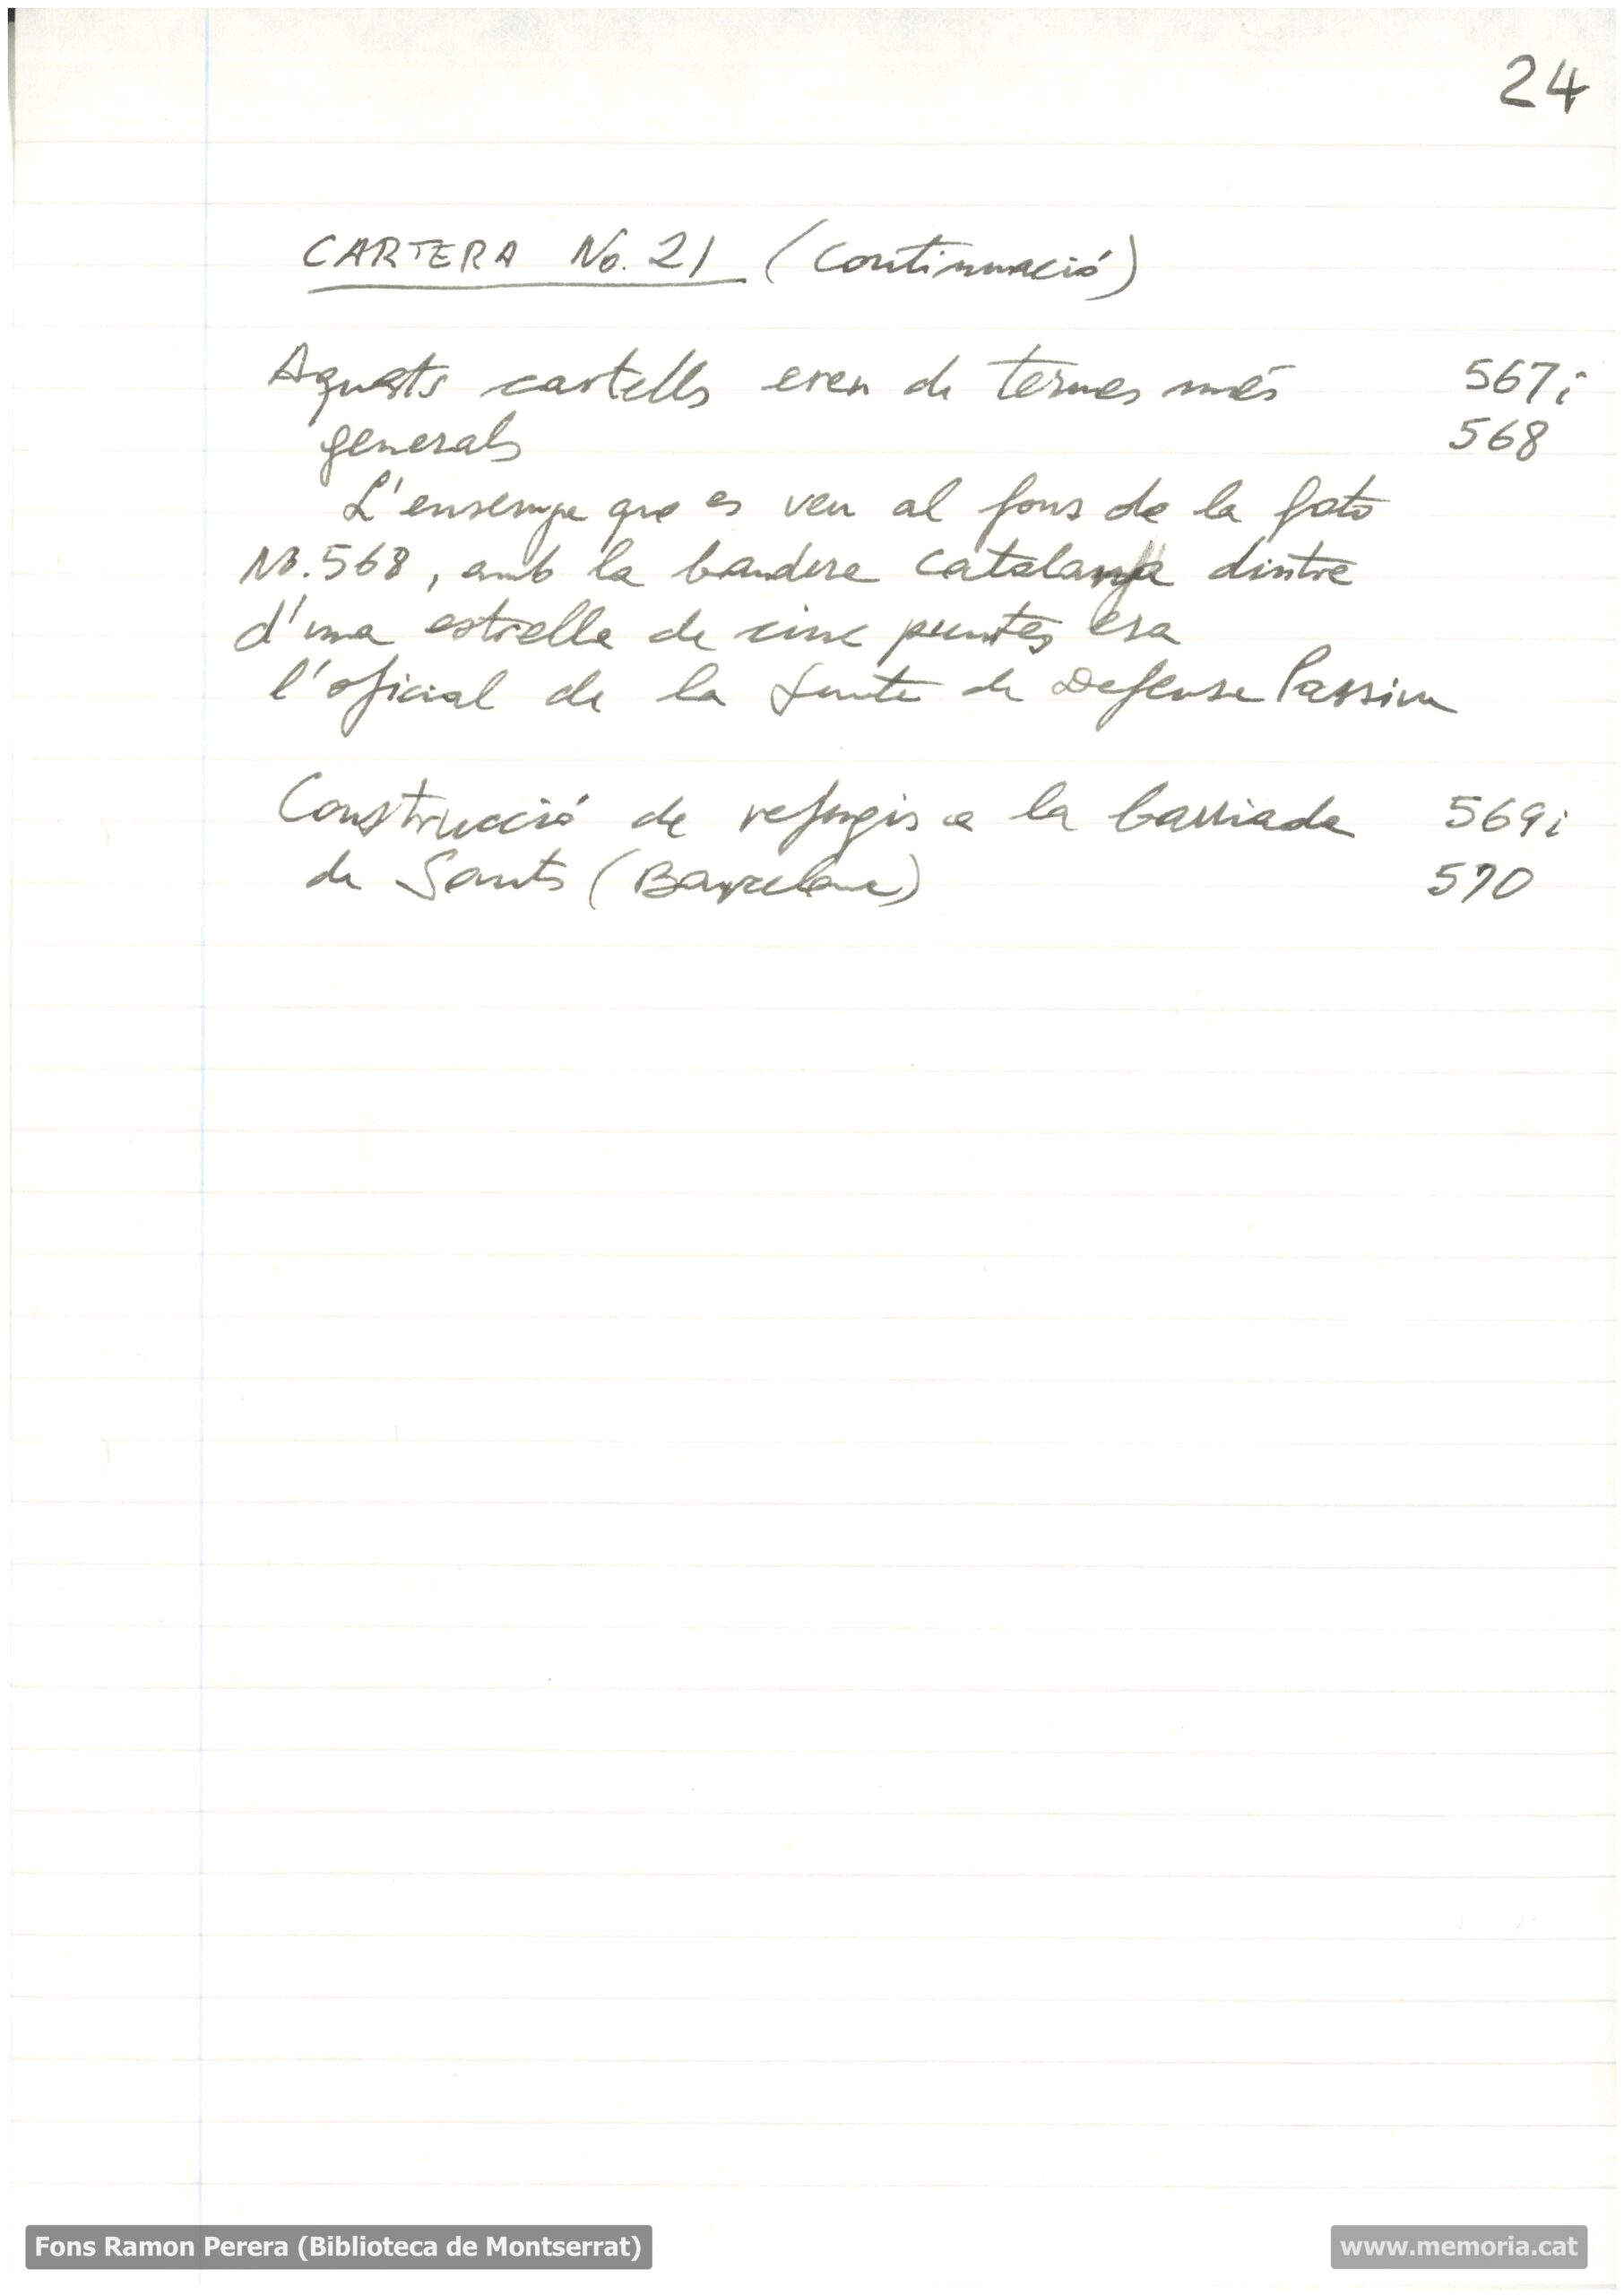 24
CARTERA No. 21 (Continuació)
Aquests cartells eren de temes més 567 i
generals 568
L'ensenya que es veu al fons de la foto
No. 568, amb la bandera catalana dintre
d'una estrella de cinc puntes era
l'oficial de la Junta de Defensa Passiva
Construcció de refugis a la barriada 569 i
de Sants (Barcelona) 570
Fons Ramon Perera (Biblioteca de Montserrat)
www.memoria.cat